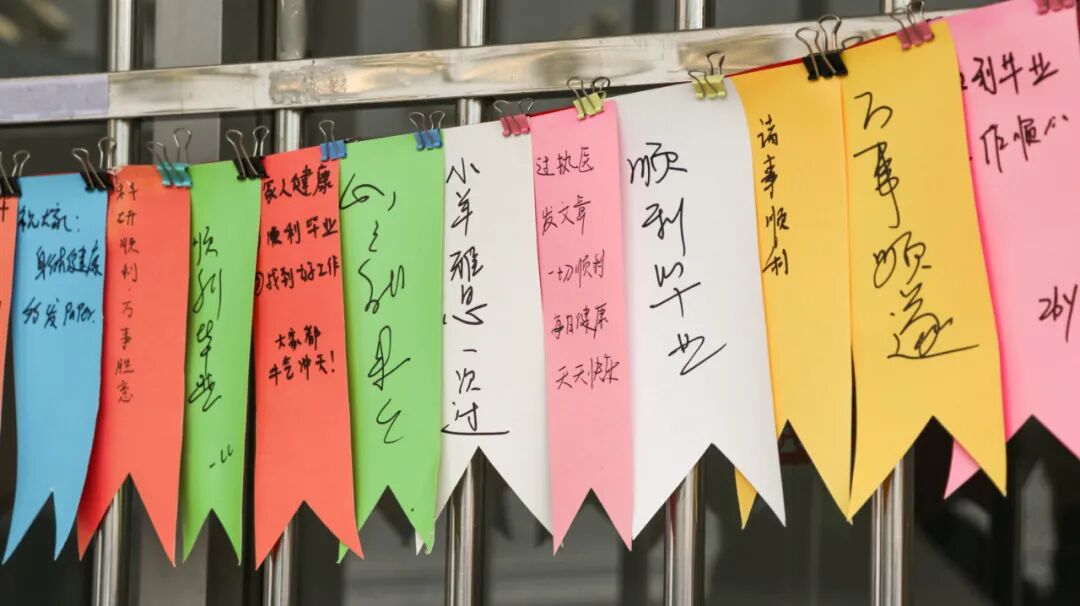 祝大家:
身体健康
多发Paper.
科研顺利,万事胜意
顺利毕业
家人健康
顺利毕业
找到好工作
大家都
牛气冲天!
小羊雅思一次过
过执医
发文章
一切顺利
每日健康
天天快乐
顺利毕业
诸事顺利
万事顺遂
利毕业
作顺心